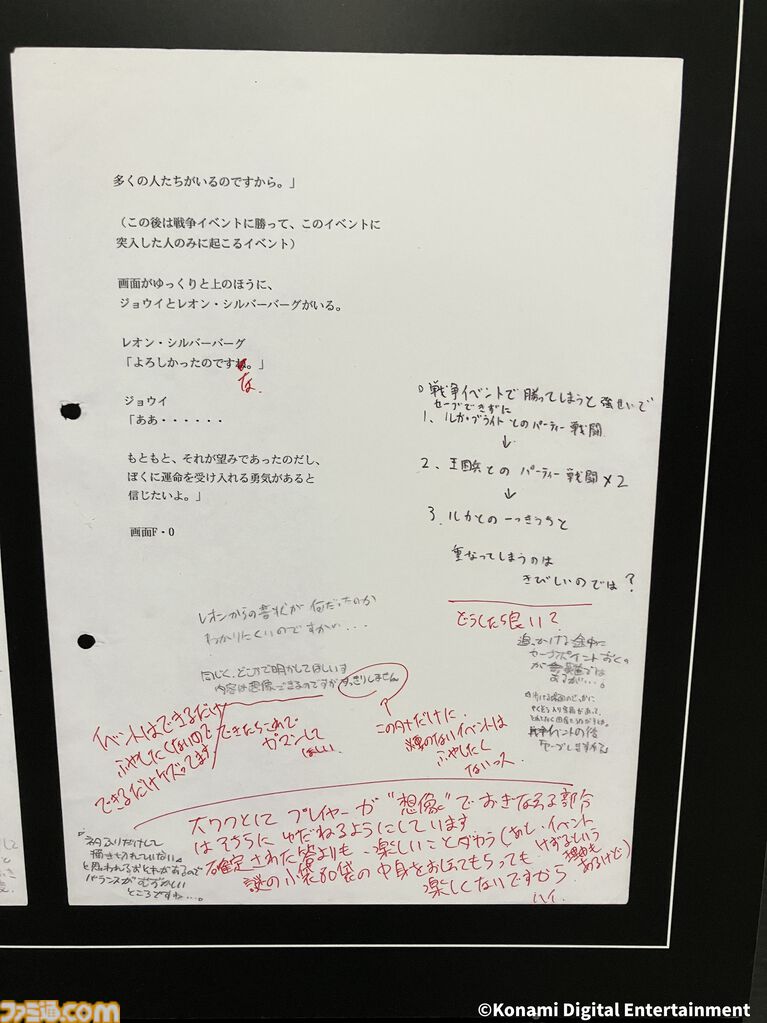 多くの人たちがいるのですから。」
(この後は戦争イベントに勝って、このイベントに
突入した人のみに起こるイベント)
画面がゆっくりと上のほうに、
ジョウイとレオン・シルバーバーグがいる。
レオン・シルバーバーグ
「よろしかったのですね。」
な。
ジョウイ
「ああ・・・・・・
もともと、それが望みであったのだし、
ぼくに運命を受け入れる勇気があると
信じたいよ。」
画面F・O
戦争イベントで勝ってしまうと強せいで
セーブできずに
1、ルカ・ブライトとのパーティー戦闘
↓
2、王国兵とのパーティー戦闘×2
↓
3、ルカとの一っきうちと
重なってしまうのは
きびしいのでは?
どうしたら良い?
追いかける途中に
セーブポイントおくの
が
ですが...。
イベントの後
レオンからの書状が何だったのか
わかりにくいのですがい...
同じく、どこかで明かしてほしいす
内容は想像できるのですがすっきりしません
イベントはできるだけ
ふやしたくないので
できるだけケズってます
できたらこれで
カンベンして
ほしい
このタメだけに
イベントは
ふやしたく
ないっス
大ワクとして プレイヤーが"想像"でおぎなえる部分
はそちらにゆだねるようにしています
確定された答よりも 楽しいことダカラ(あと・イベント
けずるという
理由も
あるけど)
謎の小袋の中身をおしえてもらっても
楽しくないですから
ハイ
ネタふりだけして
描ききれていない
と思われるおそれがあるので
バランスがむずかしい
ところですね...。
ファミ通.com
©Konami Digital Entertainment